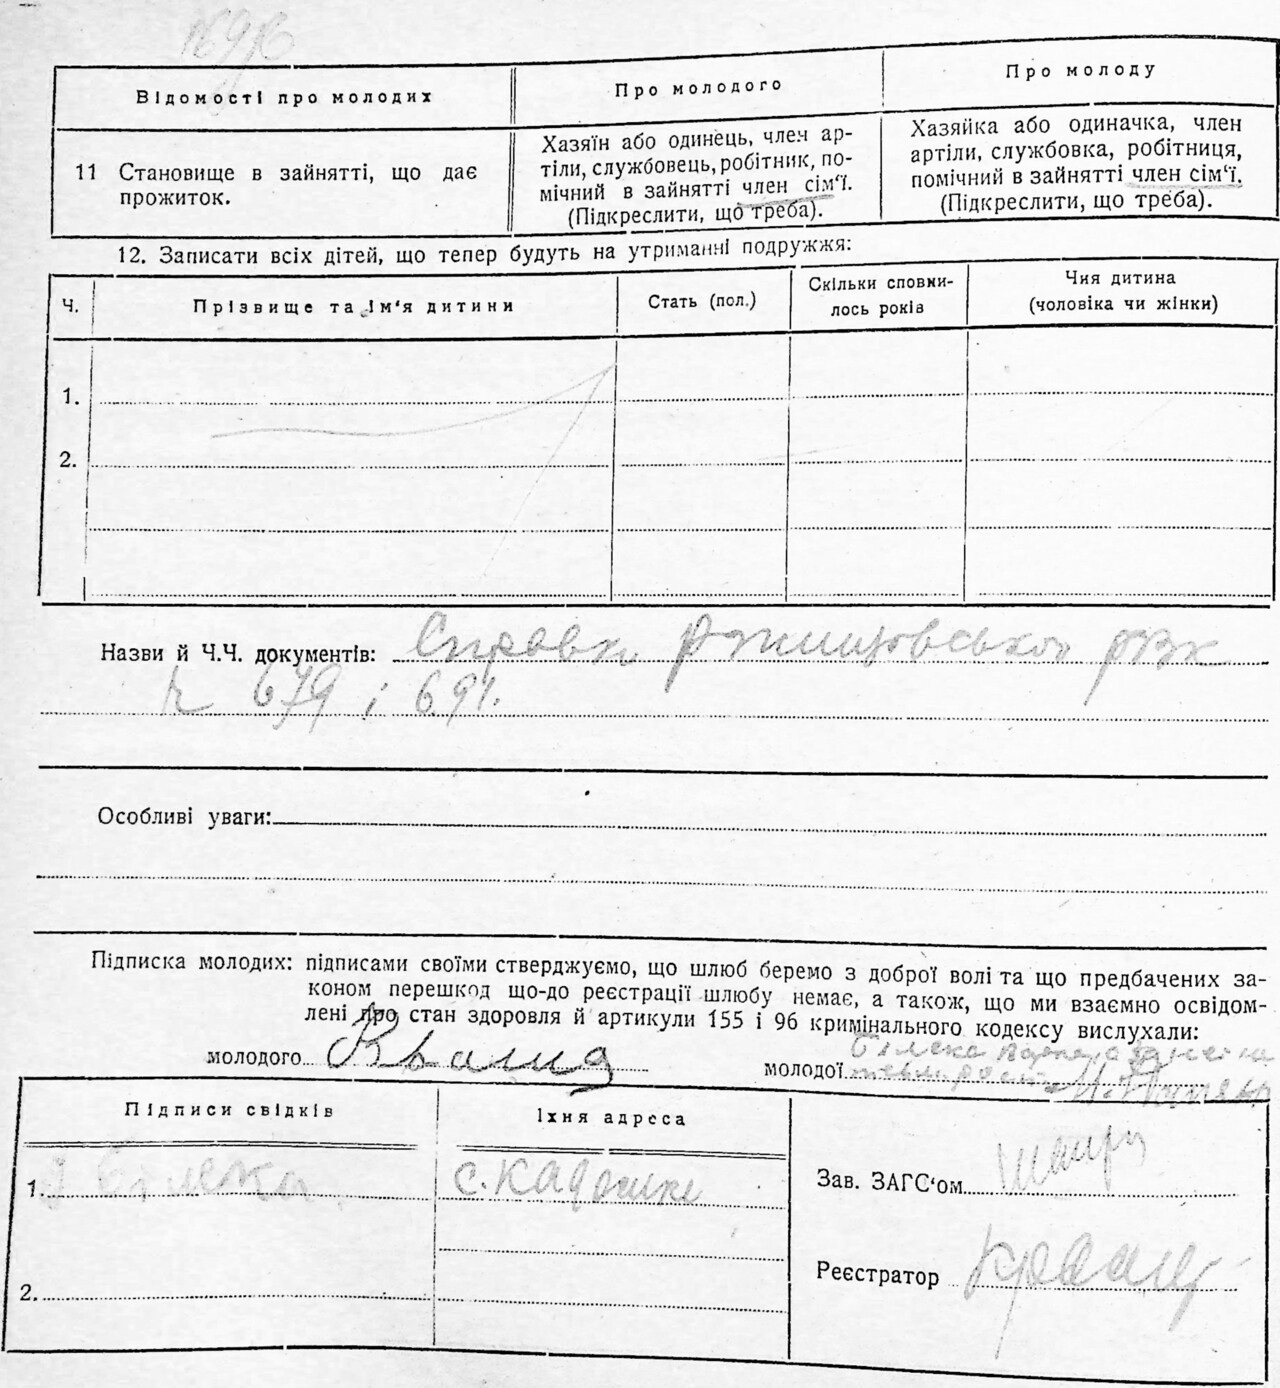 Відомості про молодих
Про молодого
Про молоду
11 Становище в зайнятті, що дає
прожиток.
Хазяїн або одинець, член ар-
тіли, службовець, робітник, по-
мічний в зайнятті член сім'ї.
(Підкреслити, що треба).
Хазяйка або одиначка, член
артіли, службовка, робітниця,
помічний в зайнятті член сім'ї.
(Підкреслити, що треба).
12. Записати всіх дітей, що тепер будуть на утриманні подружжя:
Ч.
Прізвище та ім'я дитини
Стать (пол.)
Скільки сповни-
лось років
Чия дитина
(чоловіка чи жінки)
1.
2.
Назви й Ч.Ч. документів: Справки РВК
679 і 691.
Особливі уваги:
Підписка молодих: підписами своїми стверджуємо, що шлюб беремо з доброї волі та що предбачених за-
коном перешкод що-до реєстрації шлюбу немає, а також, що ми взаємно освідом-
лені про стан здоровля й артикули 155 і 96 кримінального кодексу вислухали:
молодого
молодої
Підписи свідків
Їхня адреса
1.
с.
Зав. ЗАГС'ом
2.
Реєстратор